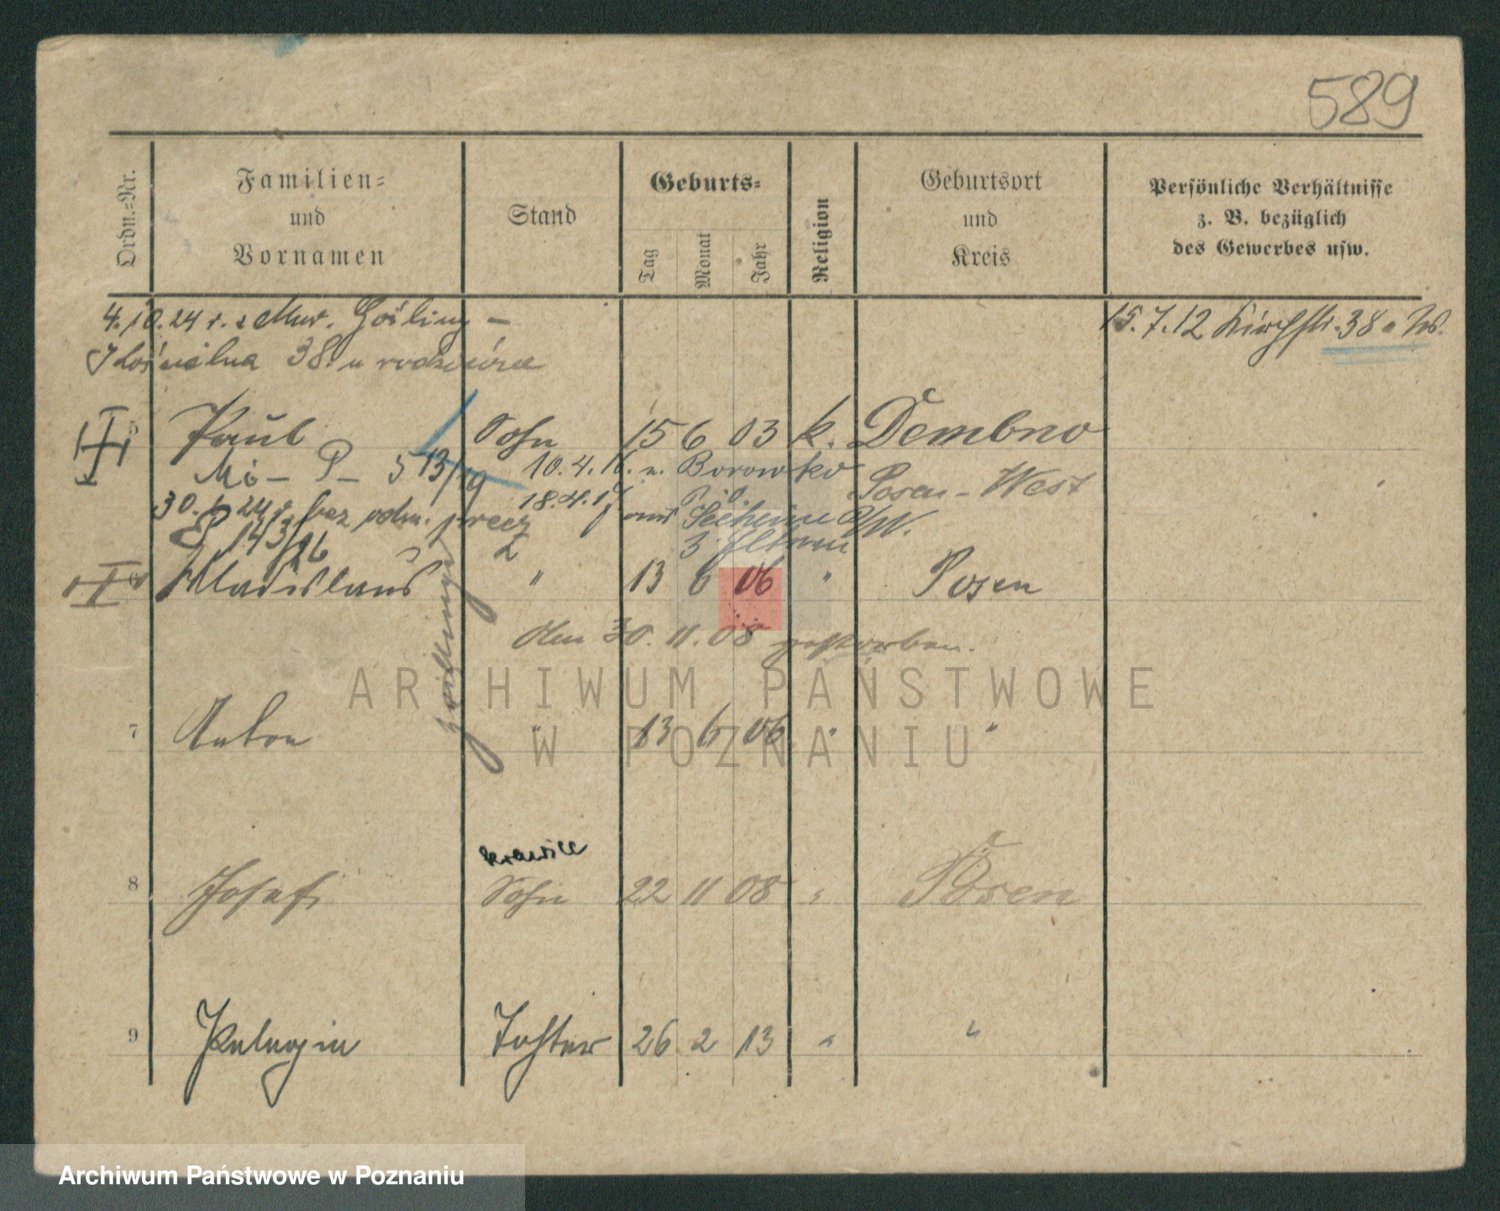 589
Ordn.-Nr.
Familien-
und
Vornamen
Stand
Geburts-
Tag
Monat
Jahr
Religion
Geburtsort
und
Kreis
Persönliche Verhältnisse
z. B. bezüglich
des Gewerbes usw.
4.10.24 r. z
38 u rodziców
15.7.12 Kirchstr. 38
5 Paul Sohn 15 6 03 k. Dembno
10.4.16. n. Borowko Posen-West
30. 24 r. bez
18.4.17 aus
E 143/26
6 Wladislaus " 13 6 06 " Posen
den 30.11.08 gestorben.
Zwillinge
7 Anton " 13 6 06 " "
krawiec
8 Josef Sohn 22 11 08 " Posen
9 Pelagia Tochter 26 2 13 " "
ARCHIWUM PAŃSTWOWE
W POZNANIU
Archiwum Państwowe w Poznaniu